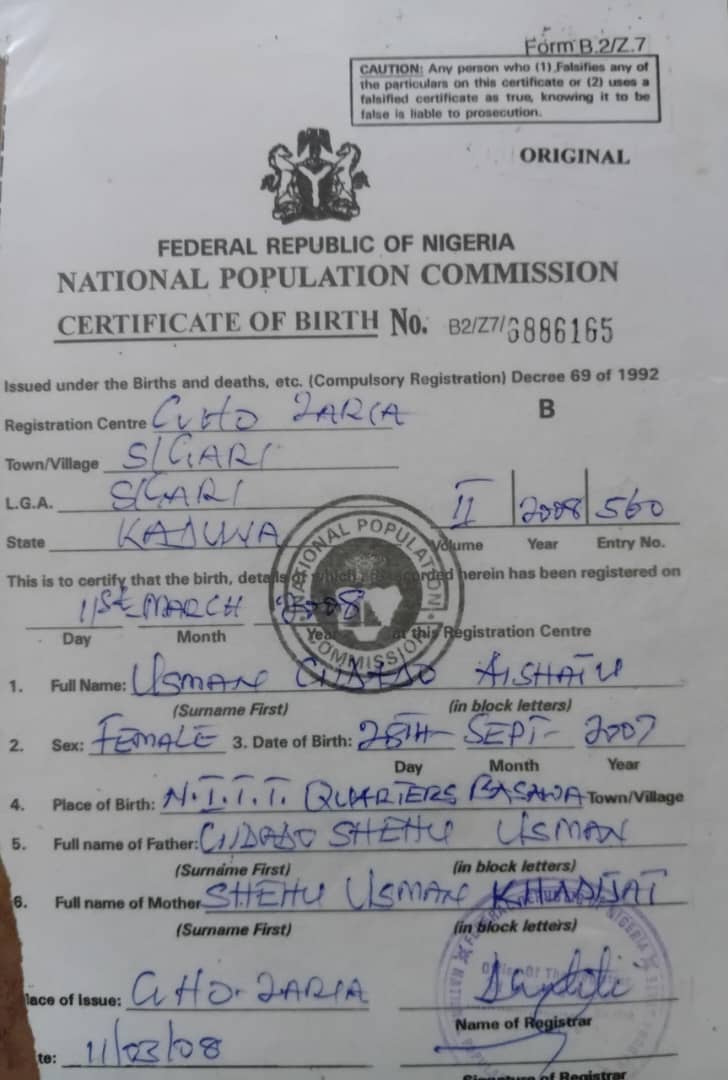 Form B.2/Z.7
CAUTION: Any person who (1) Falsifies any of
the particulars on this certificate or (2) uses a
falsified certificate as true, knowing it to be
false is liable to prosecution.
ORIGINAL
FEDERAL REPUBLIC OF NIGERIA
NATIONAL POPULATION COMMISSION
CERTIFICATE OF BIRTH No. B2/Z7/6886165
Issued under the Births and deaths, etc. (Compulsory Registration) Decree 69 of 1992
Registration Centre ZARIA B
Town/Village S/GARI
L.G.A. S/GARI
II 2008 560
State KADUNA Volume Year Entry No.
This is to certify that the birth, details of which, as recorded herein has been registered on
11ST MARCH 2008
Day Month Year at this Registration Centre
NATIONAL POPULATION COMMISSION
1. Full Name: USMAN AISHATU
(Surname First) (in block letters)
2. Sex: FEMALE 3. Date of Birth: 28TH SEPT 2007
Day Month Year
4. Place of Birth: N.I.T.T. QUARTERS BASAWA Town/Village
5. Full name of Father: SHEHU USMAN
(Surname First) (in block letters)
6. Full name of Mother SHEHU USMAN KHADIJAT
(Surname First) (in block letters)
lace of Issue: ZARIA
Name of Registrar
te: 11/03/08
Signature of Registrar